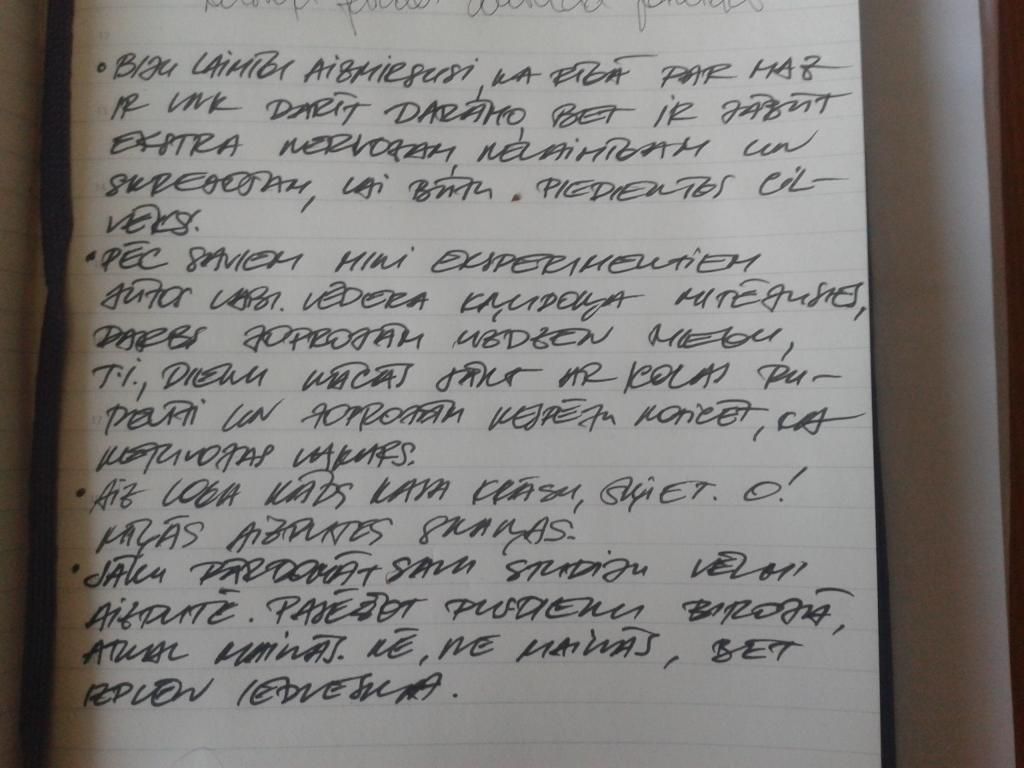 • BIJU LAIMĪGI AIZMIRSUSI, KA RĪGĀ PAR MAZ
IR TIK DARĪT DARĀMO, BET IR JĀBŪT
EKSTRA NERVOZAM, NELAIMĪGAM UN
SKREJOŠAM, LAI BŪTU PIEDIENĪGS CIL-
VĒKS.
• PĒC SAVIEM MINI EKSPERIMENTIEM
JŪTOS LABI. VĒDERA KŅUDOŅA MITĒJUSIES,
DARBS JOPROJĀM UZDZEN MIEGU,
T.I., DIENU NĀCĀS SĀKT AR KOLAS PU-
DELĪTI UN JOPROJĀM NESPĒJU NOTICĒT, KA
NETUVOJAS VAKARS.
• AIZ LOGA KĀDS KASA KRĀSU, ŠĶIET. O!
MIĻĀS AIZPUTES SKAŅAS.
• SĀKU PĀRDOMĀT SAVU STUDIJU VĒLMI
AIZPUTĒ. PASĒŽOT PUSDIENU BIROJĀ,
ATKAL MAINĀS. NĒ, NE MAINĀS, BET
IZPLĒN IEDVESMA.